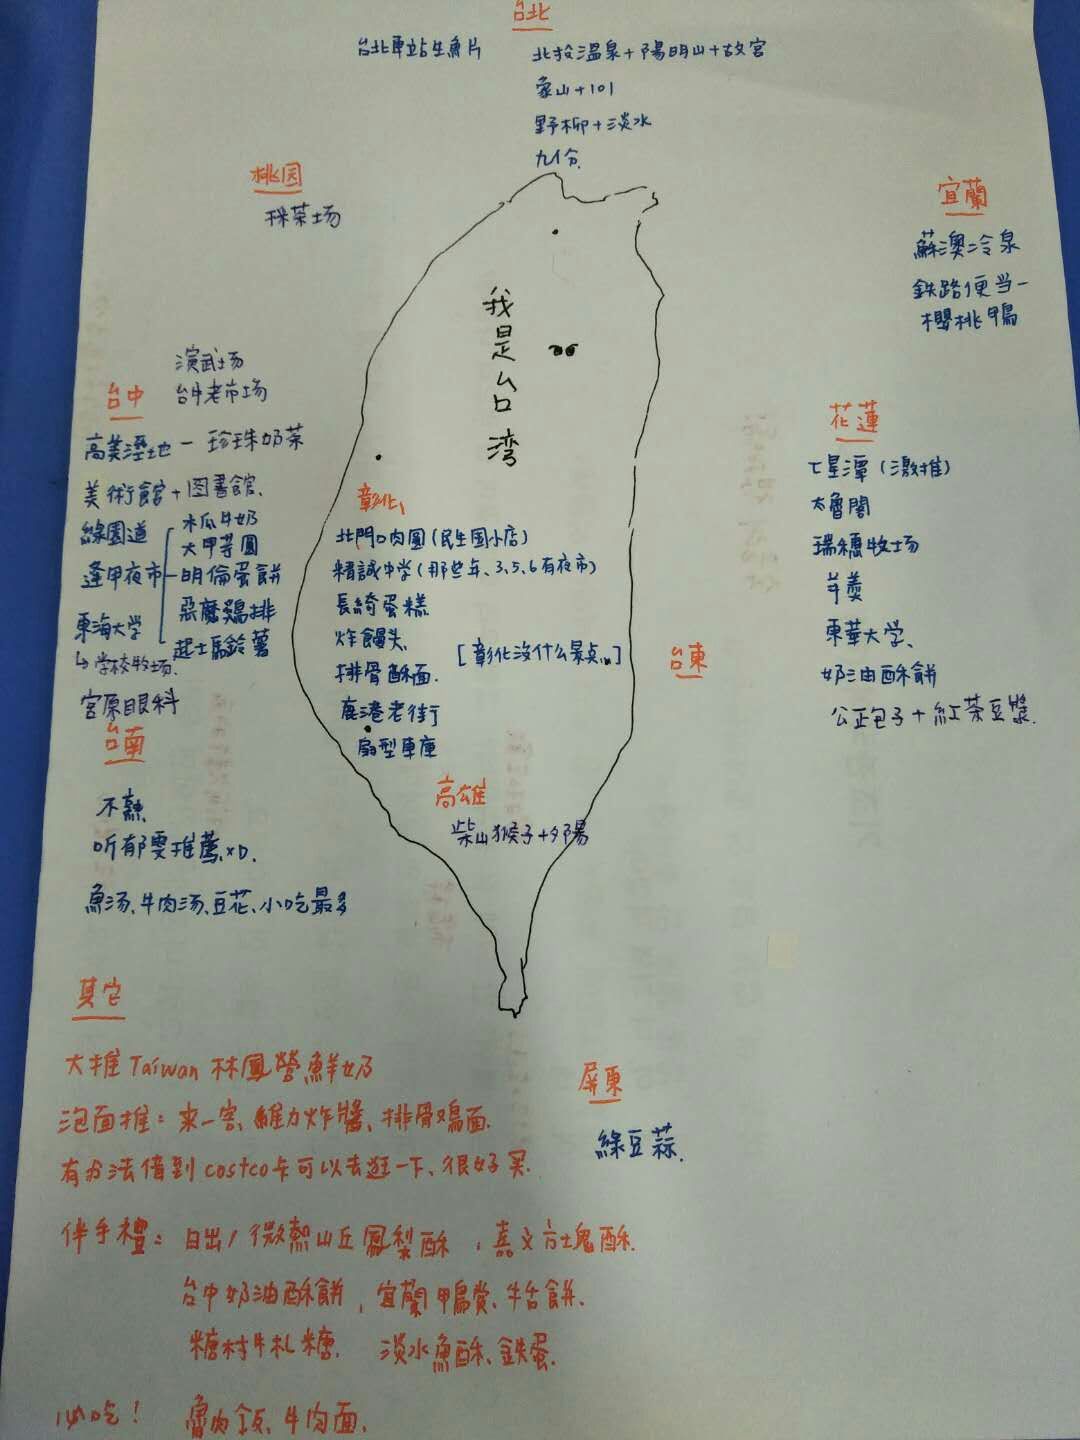 台北
台北車站生魚片
北投溫泉+陽明山+故宮
象山+101
野柳+淡水
九份
桃园
採茶場
宜蘭
蘇澳冷泉
鉄路便当-
櫻桃鴨
我是台湾
台中
演武場
台中老市場
高美溼地 - 珍珠奶茶
美術館+图書館.
綠園道
逢甲夜市
木瓜牛奶
大甲芋圓
明倫蛋餅
惡魔鷄排
起士馬鈴薯
東海大学
↳学校牧場.
宮原眼科
彰化
北門口肉圓(民生国小店)
精誠中学(那些年、3、5、6有夜市)
長綺蛋糕
炸饅头
排骨酥面.
[彰化没什么景点...]
鹿港老街
扇型車庫
花蓮
七星潭(激推)
太魯閣
瑞穗牧场
羊羹
東華大学、
奶油酥餅
公正包子+紅茶豆漿.
台東
台南
不熟.
听郁雯推薦.xD.
魚汤、牛肉汤、豆花、小吃最多
高雄
柴山猴子+夕陽
其它
大推Taiwan林鳳營鮮奶
泡面推:來一客、維力炸醬、排骨鷄面.
有办法借到costco卡可以去逛一下、很好买.
伴手禮: 日出/微熱山丘鳳梨酥, 嘉义方塊酥.
台中奶油酥餅, 宜蘭鴨賞、牛舌餅、
糖村牛札糖. 淡水魚酥、鉄蛋.
必吃! 魯肉飯、牛肉面.
屏東
綠豆蒜.